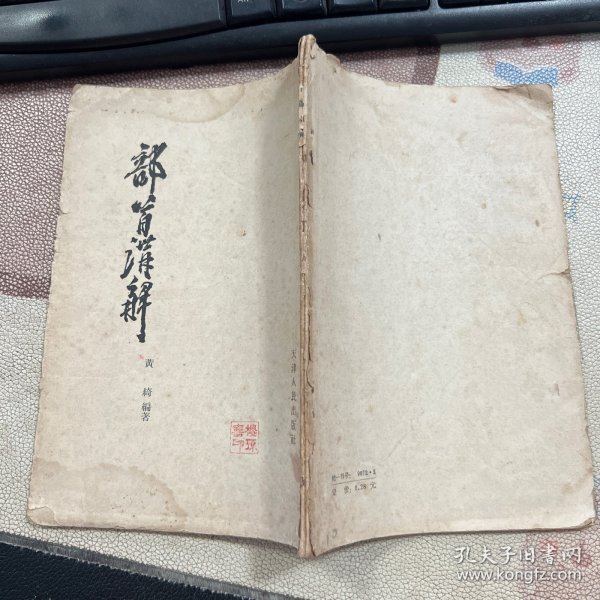 部首講解
黄綺編著
天津人民出版社
統一書号:
定價:
元
孔夫子旧书网
www.kongfz.com